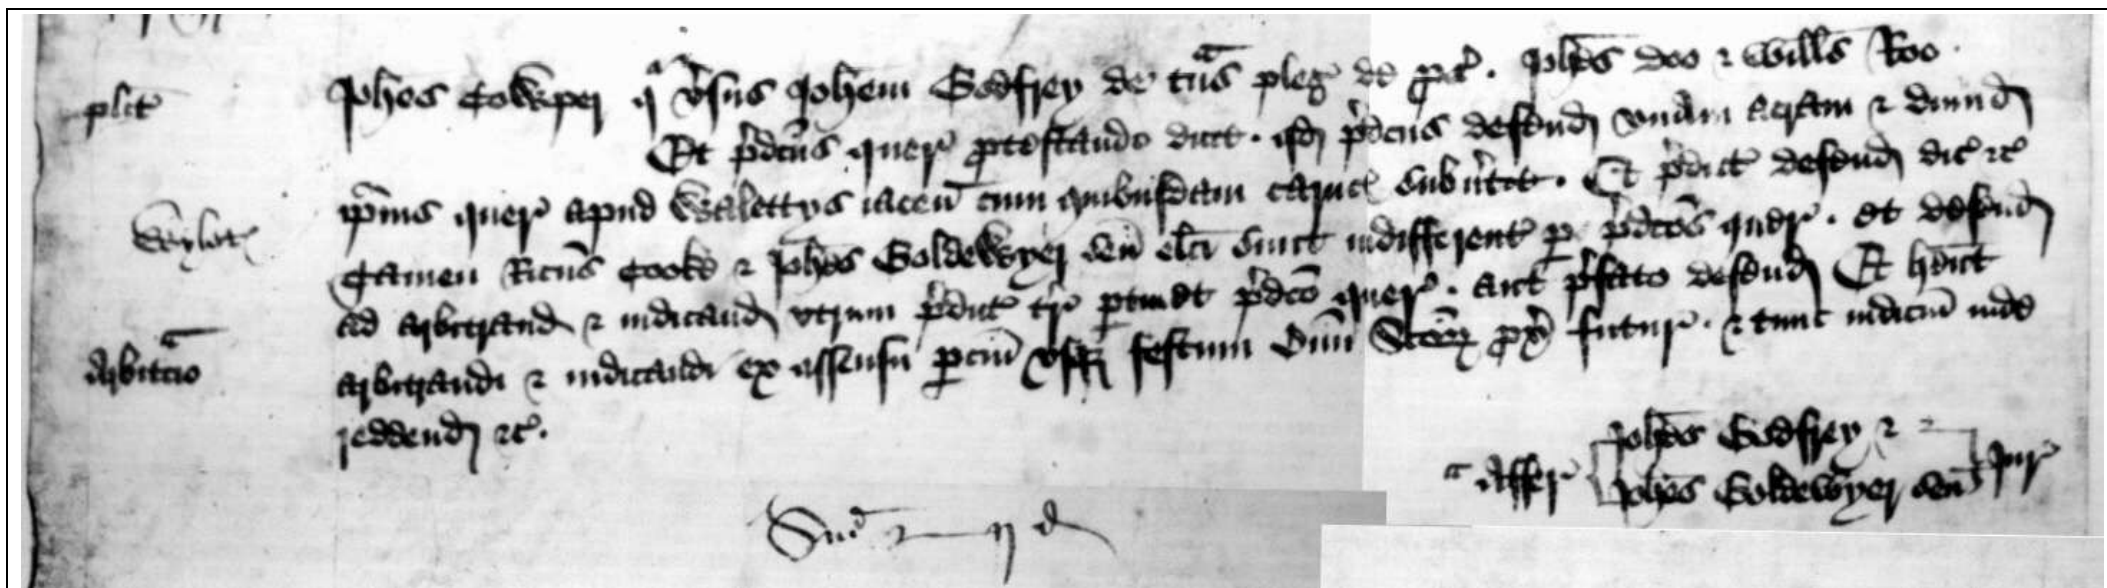 plit
Joh̄es Cowper q̄r v̄sus Joh̄em Godfrey de tn̄s pleg de p̄. Joh̄es Doo ⁊ Will̄s Roo.
Et p̄dc̄us quer protestando dicit. qd p̄dcus defend unam acram ⁊ dimid
ip̄ius quer apud Walettys iacen̄ cum quibusdam caruc̄ subv̄tit. Et p̄dict defend dic̄ ⁊c̄
Wylot
Tamen Ric̄us Cooke ⁊ Joh̄es Goldewyer sen̄ elc̄i sunt indifferent p p̄dc̄os quer. et defend
ad arbitrand ⁊ iudicand utrum p̄dict t̄r ptinet p̄dc̄o quer. aut p̄fato defend Et h̄ent
Arbit̄cio
arbitrandi ⁊ iudicandi ex assensu parciū usq festum Om̄i Sc̄oꝝ p̄x futur. ⁊ tunc iudiciū inde
reddend ⁊c̄.
Affer Joh̄es Godfrey ⁊
Joh̄es Goldewyer sen̄ Jur
Sm̄ ij d